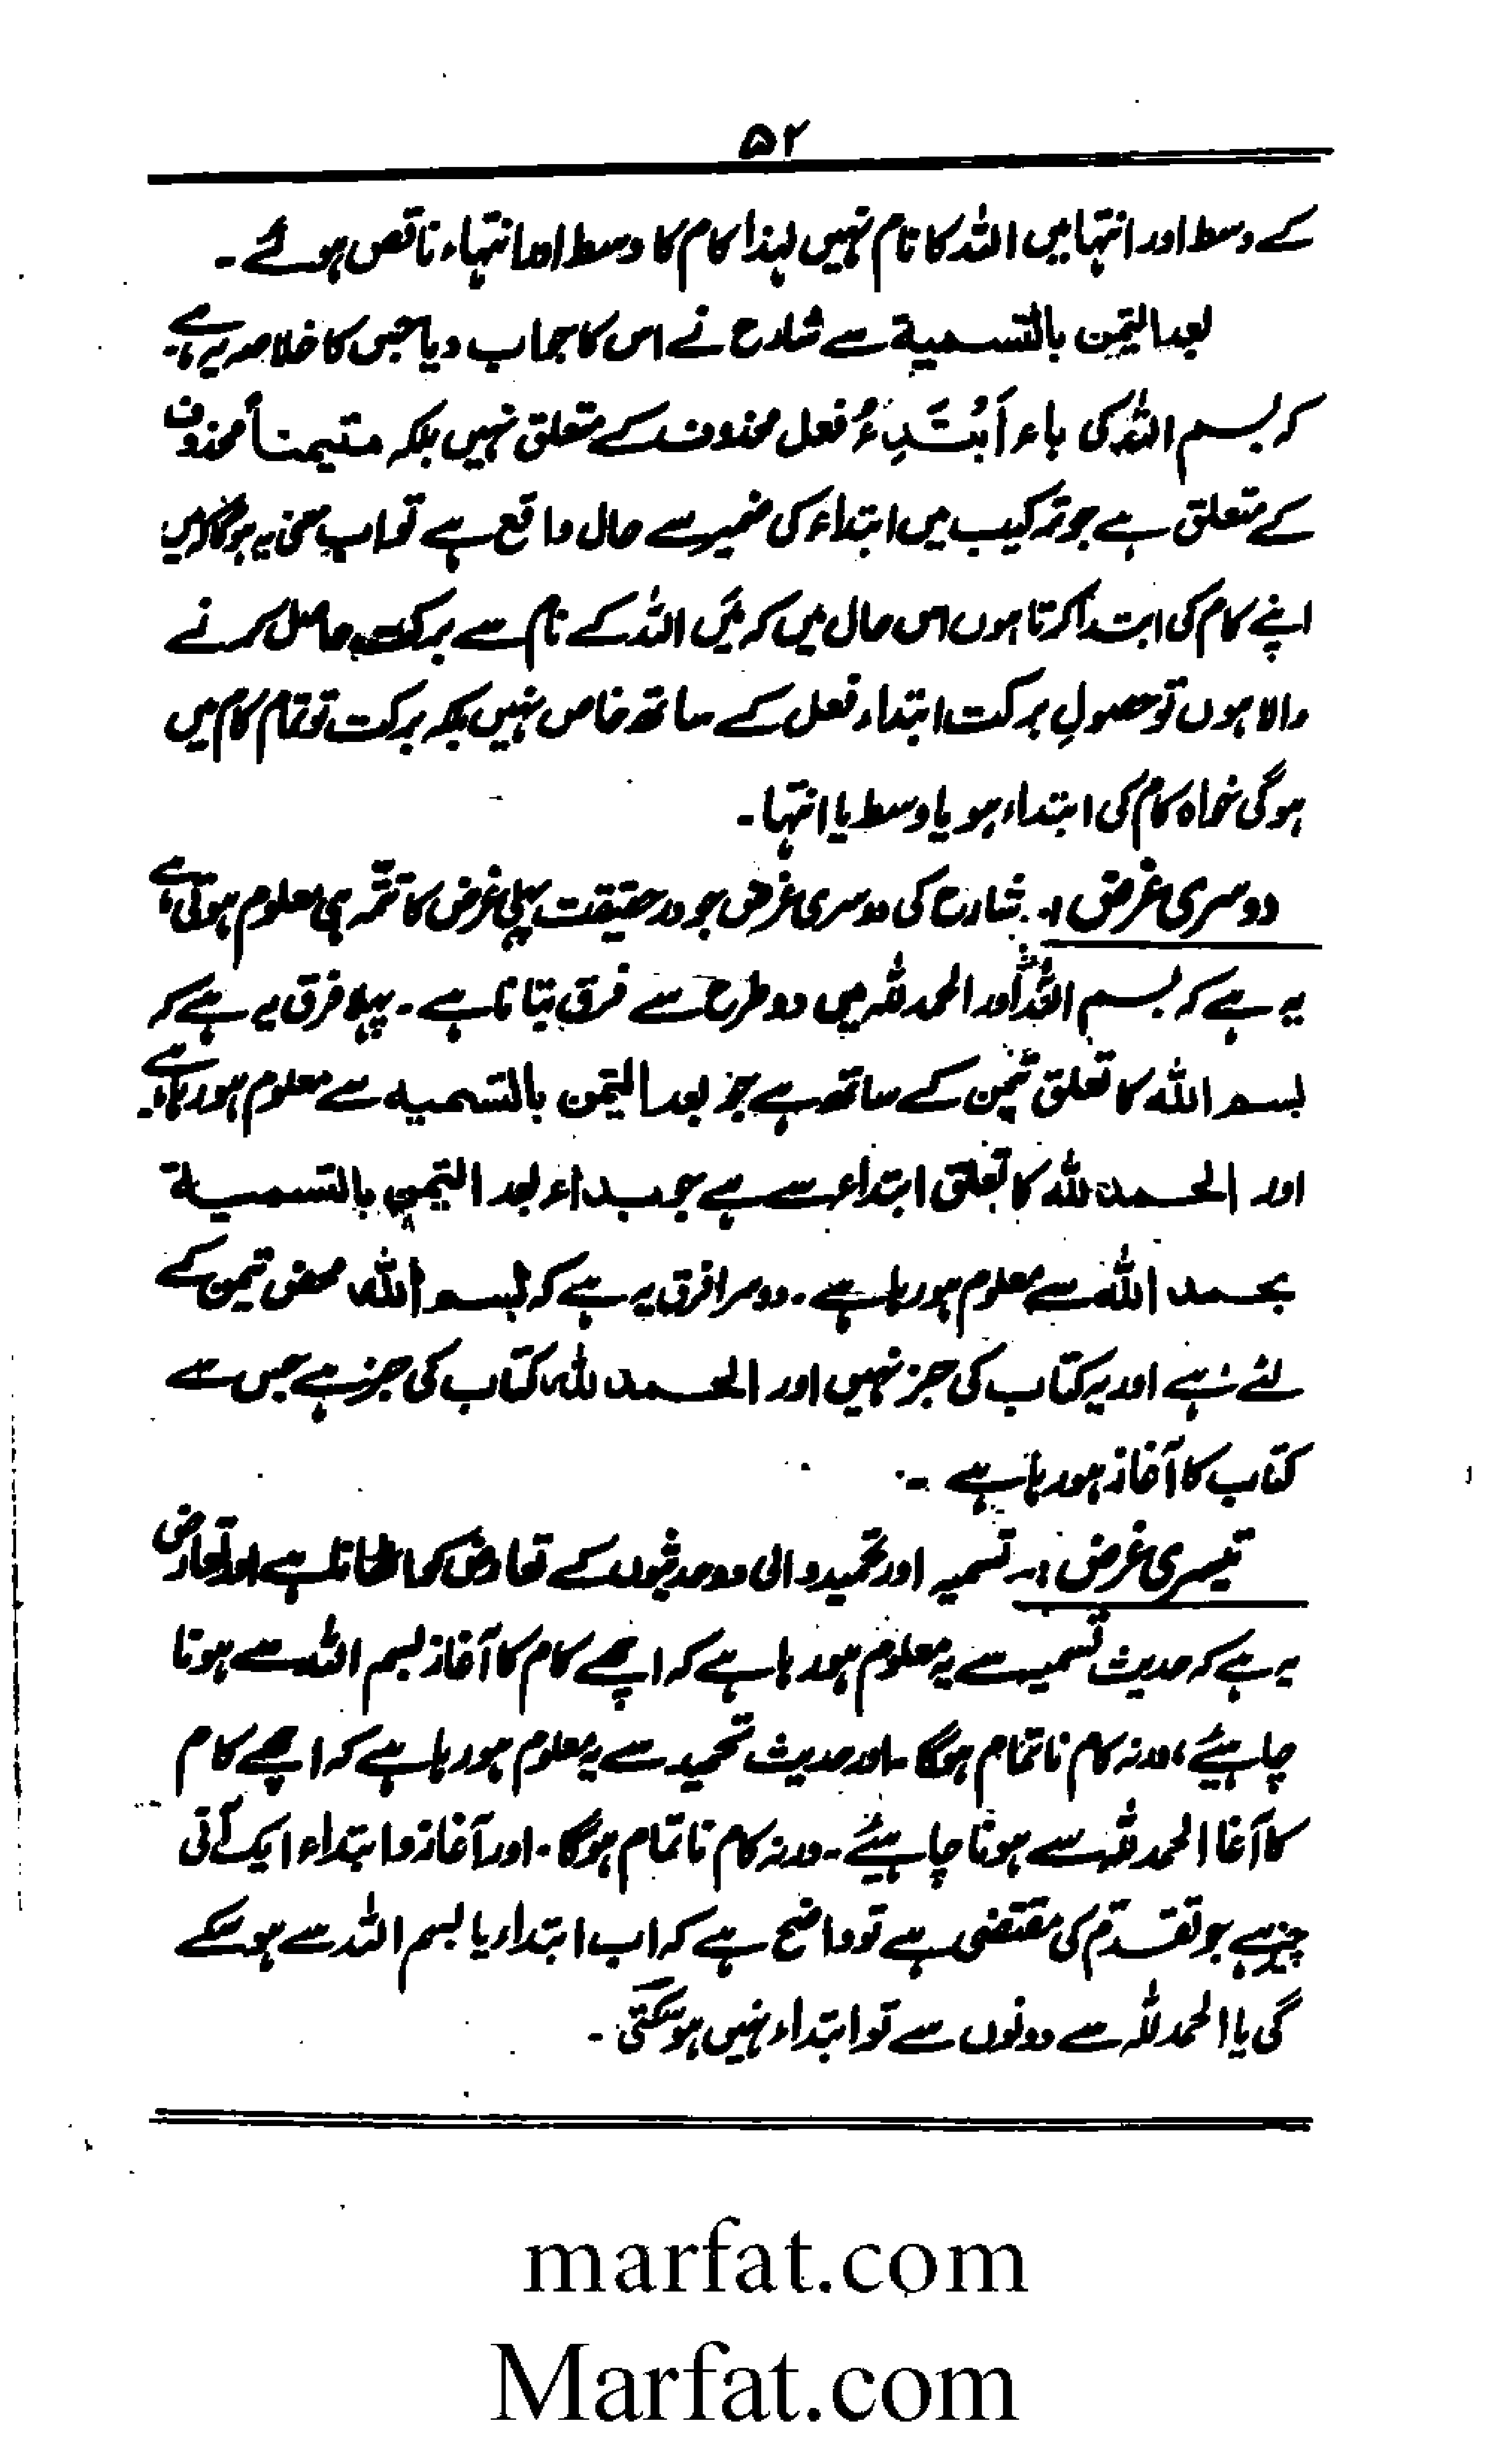 ۵۲
کے وسط اور انتہا میں اللہ کا نام نہیں لہذا کام کا وسط اور انتہاء ناقص ہوئے ۔
بعد التیمن بالتسمیۃ سے شارح نے اس کا جواب دیا جس کا خلاصہ یہ ہے
کہ بسم اللہ کی باء اَبْتَدِءُ فعل محذوف کے متعلق نہیں بلکہ متیمناً محذوف
کے متعلق ہے جو ترکیب میں ابتداء کی ضمیر سے حال واقع ہے تو اب معنی یہ ہوگا کہ میں
اپنے کام کی ابتدا کرتا ہوں اس حال میں کہ مَیں اللہ کے نام سے برکت حاصل کرنے
والا ہوں تو حصولِ برکت ابتداء فعل کے ساتھ خاص نہیں بلکہ برکت تو تمام کام میں
ہوگی خواہ کام کی ابتداء ہو یا وسط یا انتہا ۔
دوسری غرض :۔ شارح کی دوسری غرض جو درحقیقت پہلی غرض کا تتمّہ ہی معلوم ہوتی ہے
یہ ہے کہ بسم اللہ اور الحمد للہ میں دو طرح سے فرق بتانا ہے ۔ پہلا فرق یہ ہے کہ
بسم اللہ کا تعلق تیمن کے ساتھ ہے جو بعد التیمن بالتسمیہ سے معلوم ہو رہا ہے۔
اور الحمد للہ کا تعلق ابتداء سے ہے جو بداء بعد التیمن بالتسمیۃ
بحمد اللہ سے معلوم ہو رہا ہے ۔ دوسرا فرق یہ ہے کہ بسم اللہ محض تیمن کے
لئے ہے اور یہ کتاب کی جز نہیں اور الحمد للہ کتاب کی جز ہے جس سے
کتاب کا آغاز ہو رہا ہے ۔
تیسری غرض :۔ تسمیہ اور تحمید والی دو حدیثوں کے تعارض کا اٹھانا ہے اور تعارض
یہ ہے کہ حدیث تسمیہ سے یہ معلوم ہو رہا ہے کہ اچھے کام کا آغاز بسم اللہ سے ہونا
چاہیئے ، ورنہ کام ناتمام ہوگا ۔ اور حدیث تحمید سے یہ معلوم ہو رہا ہے کہ اچھے کام
کا آغا الحمد للہ سے ہونا چاہیئے ۔ ورنہ کام ناتمام ہوگا ۔ اور آغاز و ابتداء ایک آنی
چیز ہے جو تقدّم کی مقتضی ہے تو واضح ہے کہ اب ابتداء یا بسم اللہ سے ہو سکے
گی یا الحمد للہ سے دونوں سے تو ابتداء نہیں ہو سکتی ۔
marfat.com
Marfat.com